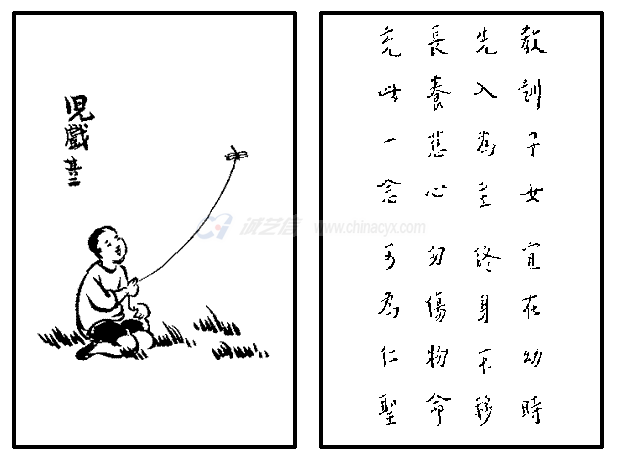 兒戲
其二
诚艺信 www.chinacyx.com
教訓子女宜在幼時
先入為主終身不移
長養慈心勿傷物命
充此一念可為仁聖